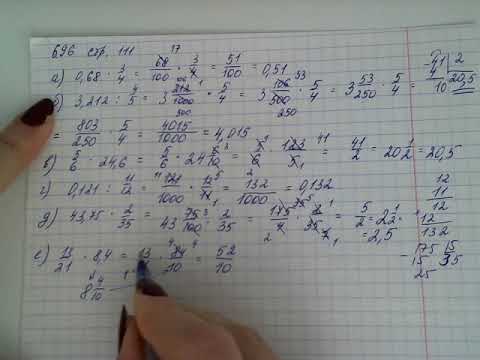 696 стр. 111
а) 0,68 · 3/4 = 68/100 · 3/4 = 51/100 = 0,51
б) 3,212 : 4/5 = 3 212/1000 · 5/4 = 3 106/500 · 5/4 = 3 53/250 · 5/4 =
= 803/250 · 5/4 = 4015/1000 = 4,015
в) 5/6 · 24,6 = 5/6 · 24 6/10 = 5/6 · 123/5 = 41/2 = 20 1/2 = 20,5
г) 0,121 : 11/12 = 121/1000 · 12/11 = 132/1000 = 0,132
д) 43,75 · 2/35 = 43 75/100 · 2/35 = 175/4 · 2/35 = 5/2 = 2 1/2 = 2,5
е) 13/21 · 8,4 = 13/21 · 84/10 = 52/10
8 4/10
41 2
4 20,5
10
12
11
12
12
132
175 35
25